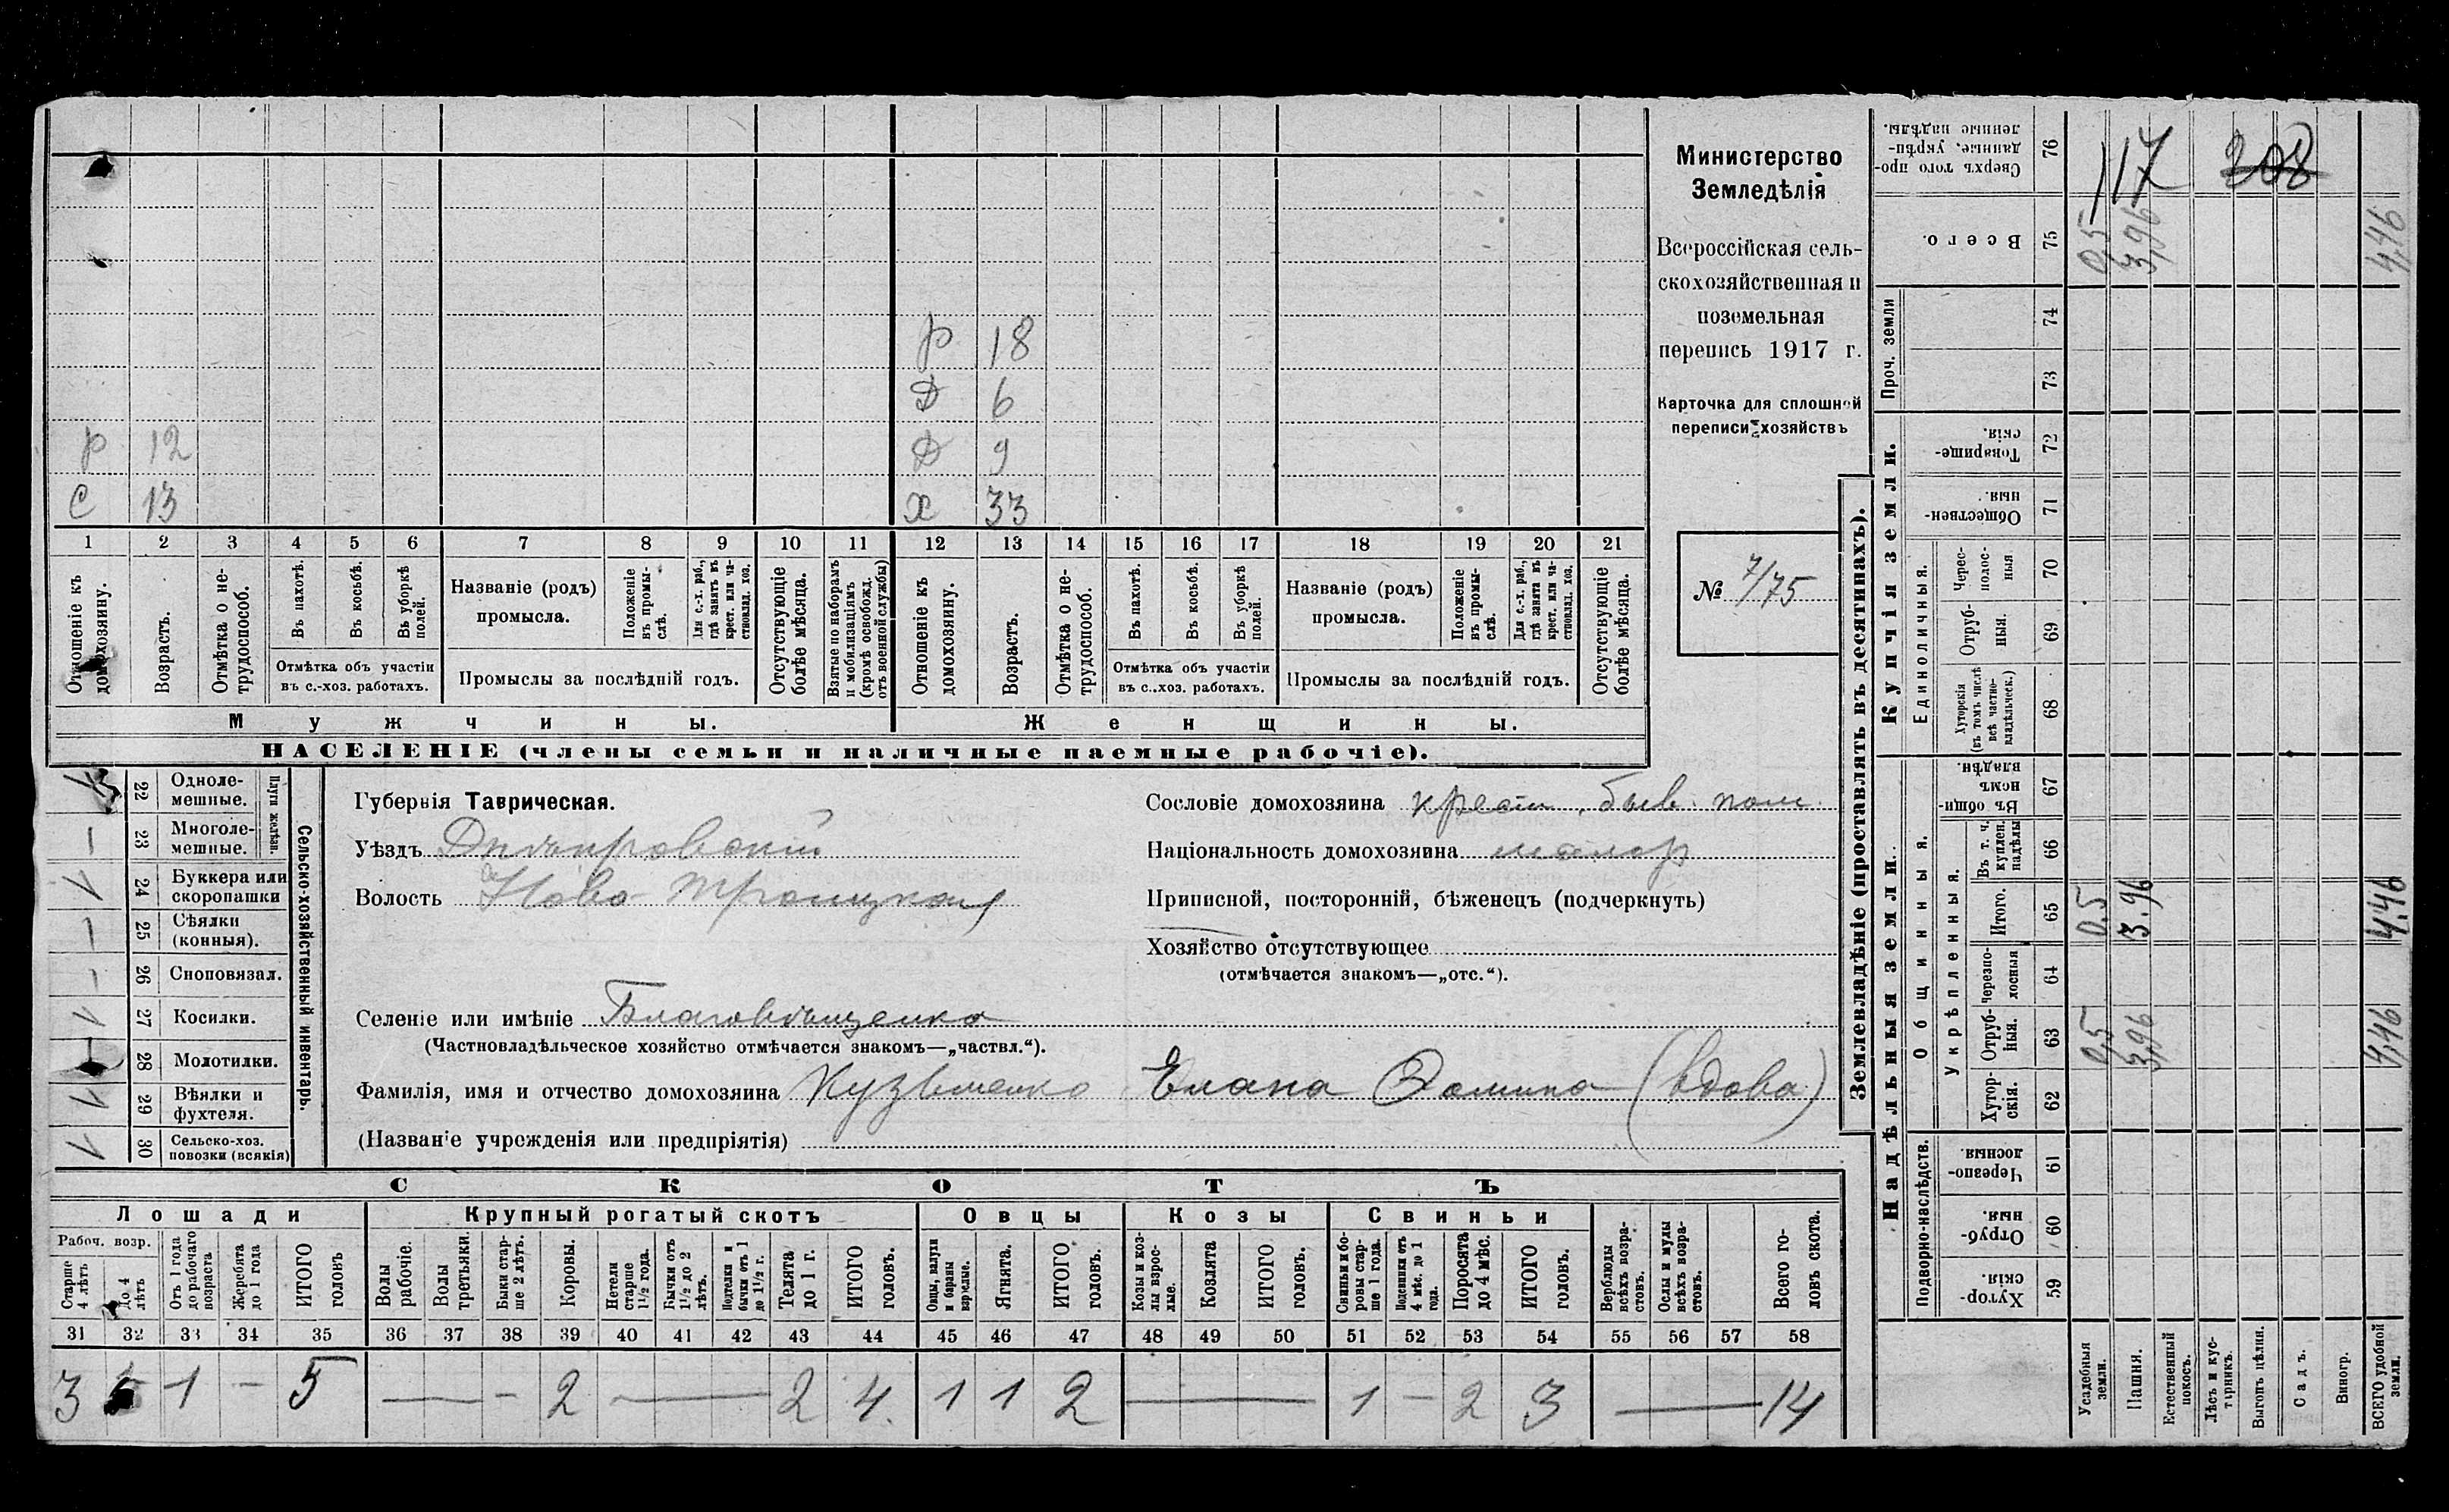 Министерство
Земледѣлія
Всероссійская сель-
скохозяйственная и
поземельная
перепись 1917 г.
Карточка для сплошной
переписи хозяйствъ
№ 7/75
р 18
Д 6
р 12 Д 9
С 13 х 33
1 2 3 4 5 6 7 8 9 10 11 12 13 14 15 16 17 18 19 20 21
Отношеніе къ домохозяину.
Возрастъ.
Отмѣтка о не-трудоспособ.
Въ пахотѣ.
Въ косьбѣ.
Въ уборкѣ полей.
Отмѣтка объ участіи
въ с.-хоз. работахъ.
Названіе (родъ)
промысла.
Положеніе въ промы-слѣ.
Для с.-х. раб., гдѣ занятъ въ крест. или ча-стновлад. хоз.
Промыслы за послѣдній годъ.
Отсутствующіе болѣе мѣсяца.
Взятые по наборамъ и мобилизаціямъ (кромѣ освобожд. отъ военной службы)
Отношеніе къ домохозяину.
Возрастъ.
Отмѣтка о не-трудоспособ.
Въ пахотѣ.
Въ косьбѣ.
Въ уборкѣ полей.
Отмѣтка объ участіи
въ с.-хоз. работахъ.
Названіе (родъ)
промысла.
Положеніе въ промы-слѣ.
Для с.-х. раб., гдѣ занята въ крест. или ча-стновлад. хоз.
Промыслы за послѣдній годъ.
Отсутствующіе болѣе мѣсяца.
Мужчины. Женщины.
НАСЕЛЕНІЕ (члены семьи и наличные наемные рабочіе).
Сельско-хозяйственный инвентарь.
Плуги желѣзн.
22 Одноле-мешные.
— 23 Многоле-мешные.
V 24 Буккера или скоропашки
— 25 Сѣялки (конныя).
— 26 Сноповязал.
V 27 Косилки.
— 28 Молотилки.
V 29 Вѣялки и фухтеля.
V 30 Сельско-хоз. повозки (всякія)
Губернія Таврическая.
Уѣздъ Днѣпровскій
Волость Ново-Троицкая
Селеніе или имѣніе Благовѣщенка
(Частновладѣльческое хозяйство отмѣчается знакомъ—„частвл.“).
Фамилія, имя и отчество домохозяина Кузьменко Елана Домино (вдова)
(Названіе учрежденія или предпріятія)
Сословіе домохозяина крест. быв. пом.
Національность домохозяина малор
Приписной, посторонній, бѣженецъ (подчеркнуть)
Хозяйство отсутствующее
(отмѣчается знакомъ—„отс.“).
СКОТЪ
Лошади Крупный рогатый скотъ Овцы Козы Свиньи
Рабоч. возр.
Старше 4 лѣтъ
до 4 лѣтъ
Отъ 1 года до рабочаго возраста
Жеребята до 1 года
ИТОГО головъ
Волы рабочіе.
Волы третьяки.
Быки стар-ше 2 лѣтъ.
Коровы.
Нетели старше 1½ года.
Бычки отъ 1½ до 2 лѣтъ.
Подтелки и бычки отъ 1 до 1½ г.
Телята до 1 г.
ИТОГО головъ.
Овцы, валухи и бараны взрослые.
Ягнята.
ИТОГО головъ.
Козы и коз-лы взрос-лые.
Козлята
ИТОГО головъ.
Свиньи и бо-ровы стар-ше 1 года.
Подсвинки отъ 4 мѣс. до 1 года.
Поросята до 4 мѣс.
ИТОГО головъ.
Верблюды всѣхъ возра-стовъ.
Ослы и мулы всѣхъ возра-стовъ.
Всего го-ловъ скота.
31 32 33 34 35 36 37 38 39 40 41 42 43 44 45 46 47 48 49 50 51 52 53 54 55 56 57 58
3 1 — 5 — — 2 — 2 4. 1 1 2 — 1 — 2 3 — 14
Землевладѣніе (проставлять въ десятинахъ).
Купчія земли.
Надѣльныя земли.
Сверхъ того про-данные, укрѣп-ленные надѣлы. 76 117 208
Всего. 75 0,5 3,96 4,46
Проч. земли 74
73
Товарище-скія. 72
Обществен-ныя. 71
Единоличныя.
Черес-полос-ныя 70
Отруб-ныя. 69
Хуторскія (въ томъ числѣ всѣ частно-владѣльческ.) 68
Общинныя.
Въ общи-номъ владѣн. 67
Укрѣпленныя.
Въ т. ч. куплен. надѣлы 66
Итого. 65 0.5 3.96 4,46
Черезпо-лосныя 64
Отруб-ныя. 63 0,5 3,96 4,46
Хутор-скія. 62
Подворно-наслѣдств.
Черезпо-лосныя. 61
Отруб-ныя. 60
Хутор-скія. 59
Усадебныя земли.
Пашня.
Естественный покосъ.
Лѣсъ и кус-тарникъ.
Выгонъ цѣлин.
Садъ.
Виногр.
ВСЕГО удобной земли.